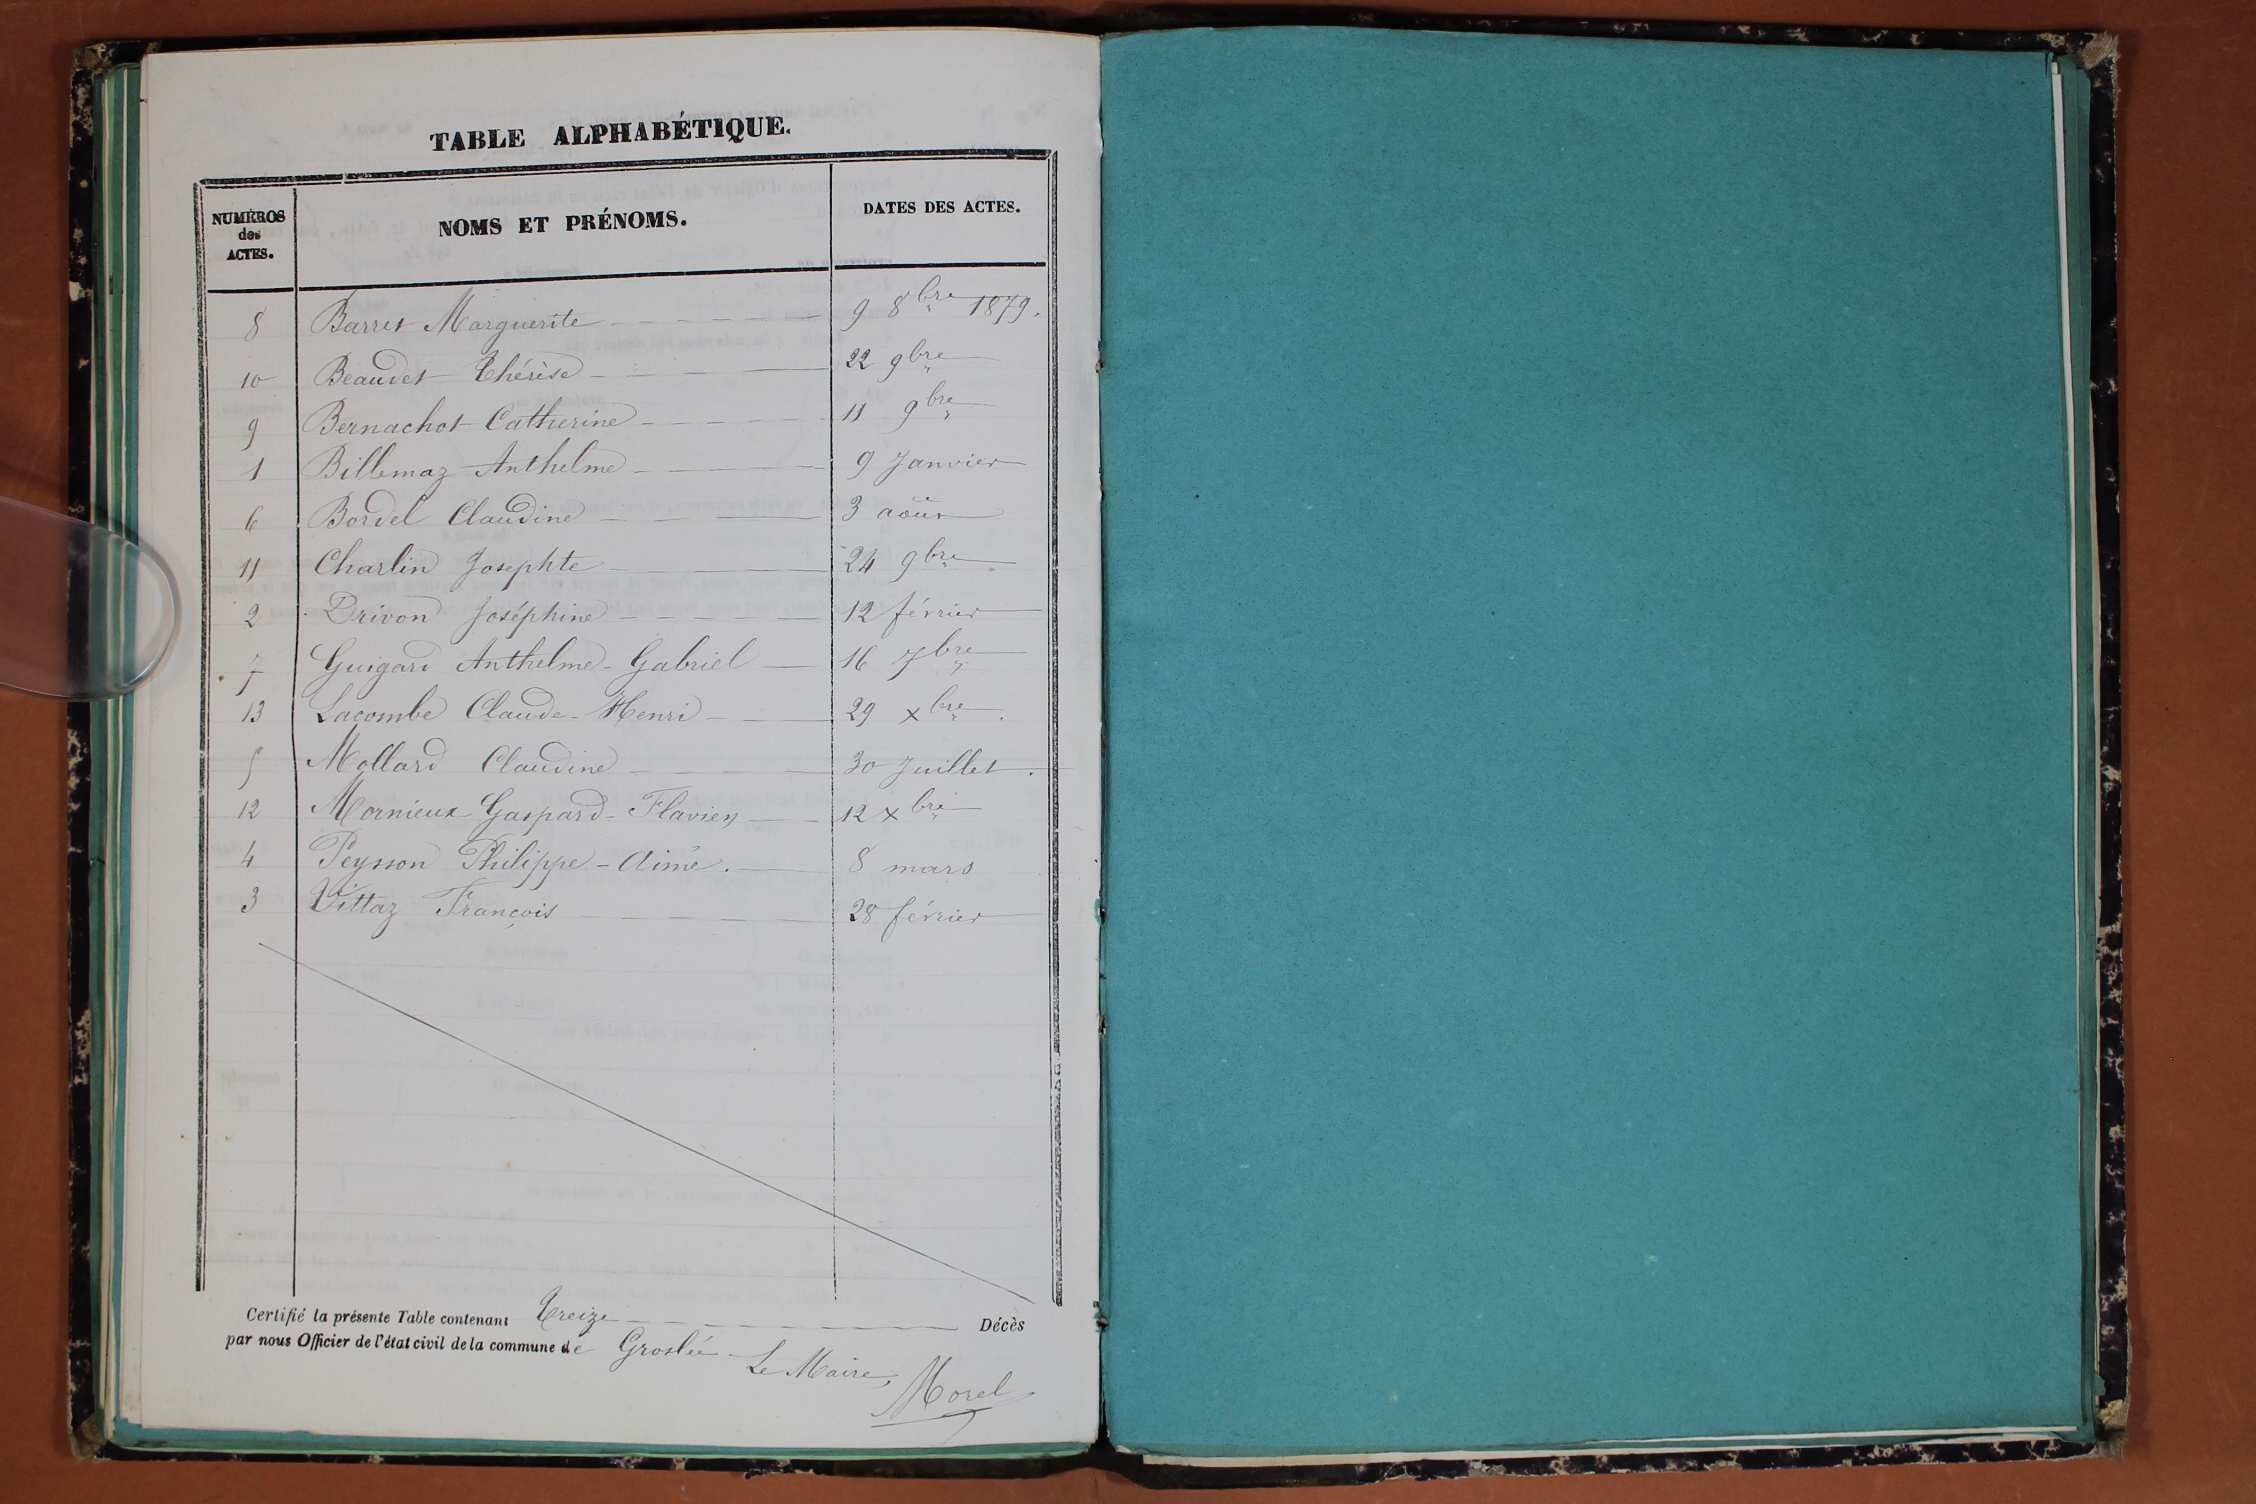 TABLE ALPHABÉTIQUE.
NUMÉROS des ACTES. NOMS ET PRÉNOMS. DATES DES ACTES.
8 Barret Marguerite 9 8bre 1879.
10 Beaudet Thérèse 22 9bre
9 Bernachot Catherine 11 9bre
1 Billemaz Anthelme 9 Janvier
6 Bordel Claudine 3 août
11 Charlin Josephte 24 9bre
2 Drivon Joséphine 12 février
7 Guigard Anthelme-Gabriel 16 7bre
13 Lacombe Claude-Henri 29 xbre.
5 Mollard Claudine 30 Juillet.
12 Mornieux Gaspard-Flavien 12 xbre
4 Peysson Philippe-Aimé. 8 mars
3 Vittaz François 28 février
Certifié la présente Table contenant Treize Décès
par nous Officier de l'état civil de la commune de Groslée
Le Maire,
Morel